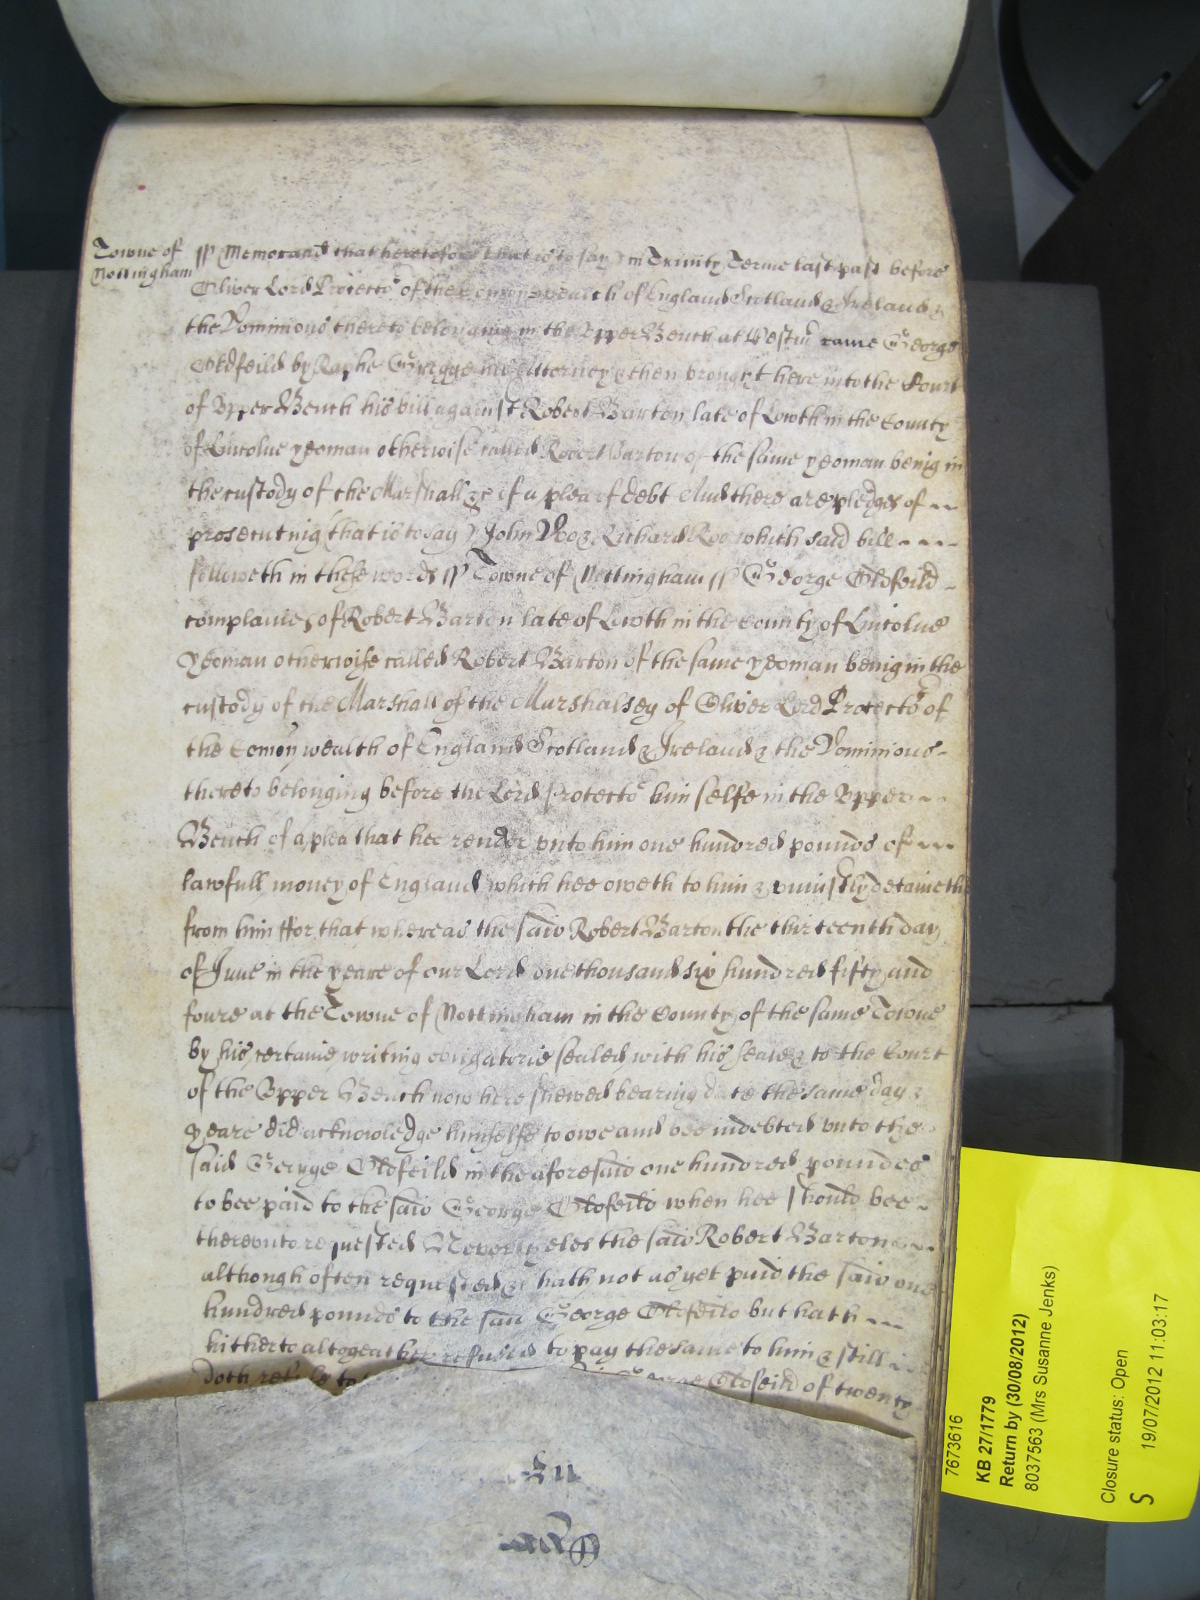 Towne of
Nottingham
ss Memorand that heretofore that is to say in Trinity Terme last past before
Oliver Lord Protector of the Comonwealth of England Scotland & Ireland &
the Dominions thereto belonging in the Upper Bench at Westmr came George
Oldfeild by Raphe Gregge his Attorney & then brought here into the Court
of Upper Bench his bill against Robert Barton late of Lowth in the County
of Lincolne yeoman otherwise called Robert Barton of the same yeoman being in
the custody of the Marshall &c of a plea of debt And there are pledges of
prosecuting that is to say John Doo & Richard Roo which said bill
followeth in these words ss Towne of Nottingham ss George Oldfeild
complaines of Robert Barton late of Lowth in the County of Lincolne
Yeoman otherwise called Robert Barton of the same yeoman being in the
custody of the Marshall of the Marshalsey of Oliver Lord Protector of
the Comon wealth of England Scotland & Ireland & the Dominions
thereto belonging before the Lord Protector him selfe in the Upper
Bench of a plea that hee render unto him one hundred pounds of
lawfull money of England which hee oweth to him & uniustly detaineth
from him ffor that whereas the said Robert Barton the thirteenth day
of June in the yeare of our Lord one thousand six hundred fifty and
foure at the Towne of Nottingham in the County of the same Towne
by his certaine writing obligatorie sealed with his seale & to the Court
of the Upper Bench now here shewed bearing date the same day &
yeare did acknowledge himselfe to owe and bee indebted unto the
said George Oldfeild in the aforesaid one hundred poundes
to bee paid to the said George Oldfeild when hee should bee
thereunto requested Neverthyeles the said Robert Barton
although often requested &c hath not as yet paid the said one
hundred pounds to the said George Oldfeild but hath
hitherto altogeather refused to pay the same to him & still
doth refuse to George Oldfeild of twenty
7673616
KB 27/1779
Return by (30/08/2012)
8037563 (Mrs Susanne Jenks)
Closure status: Open
S
19/07/2012 11:03:17